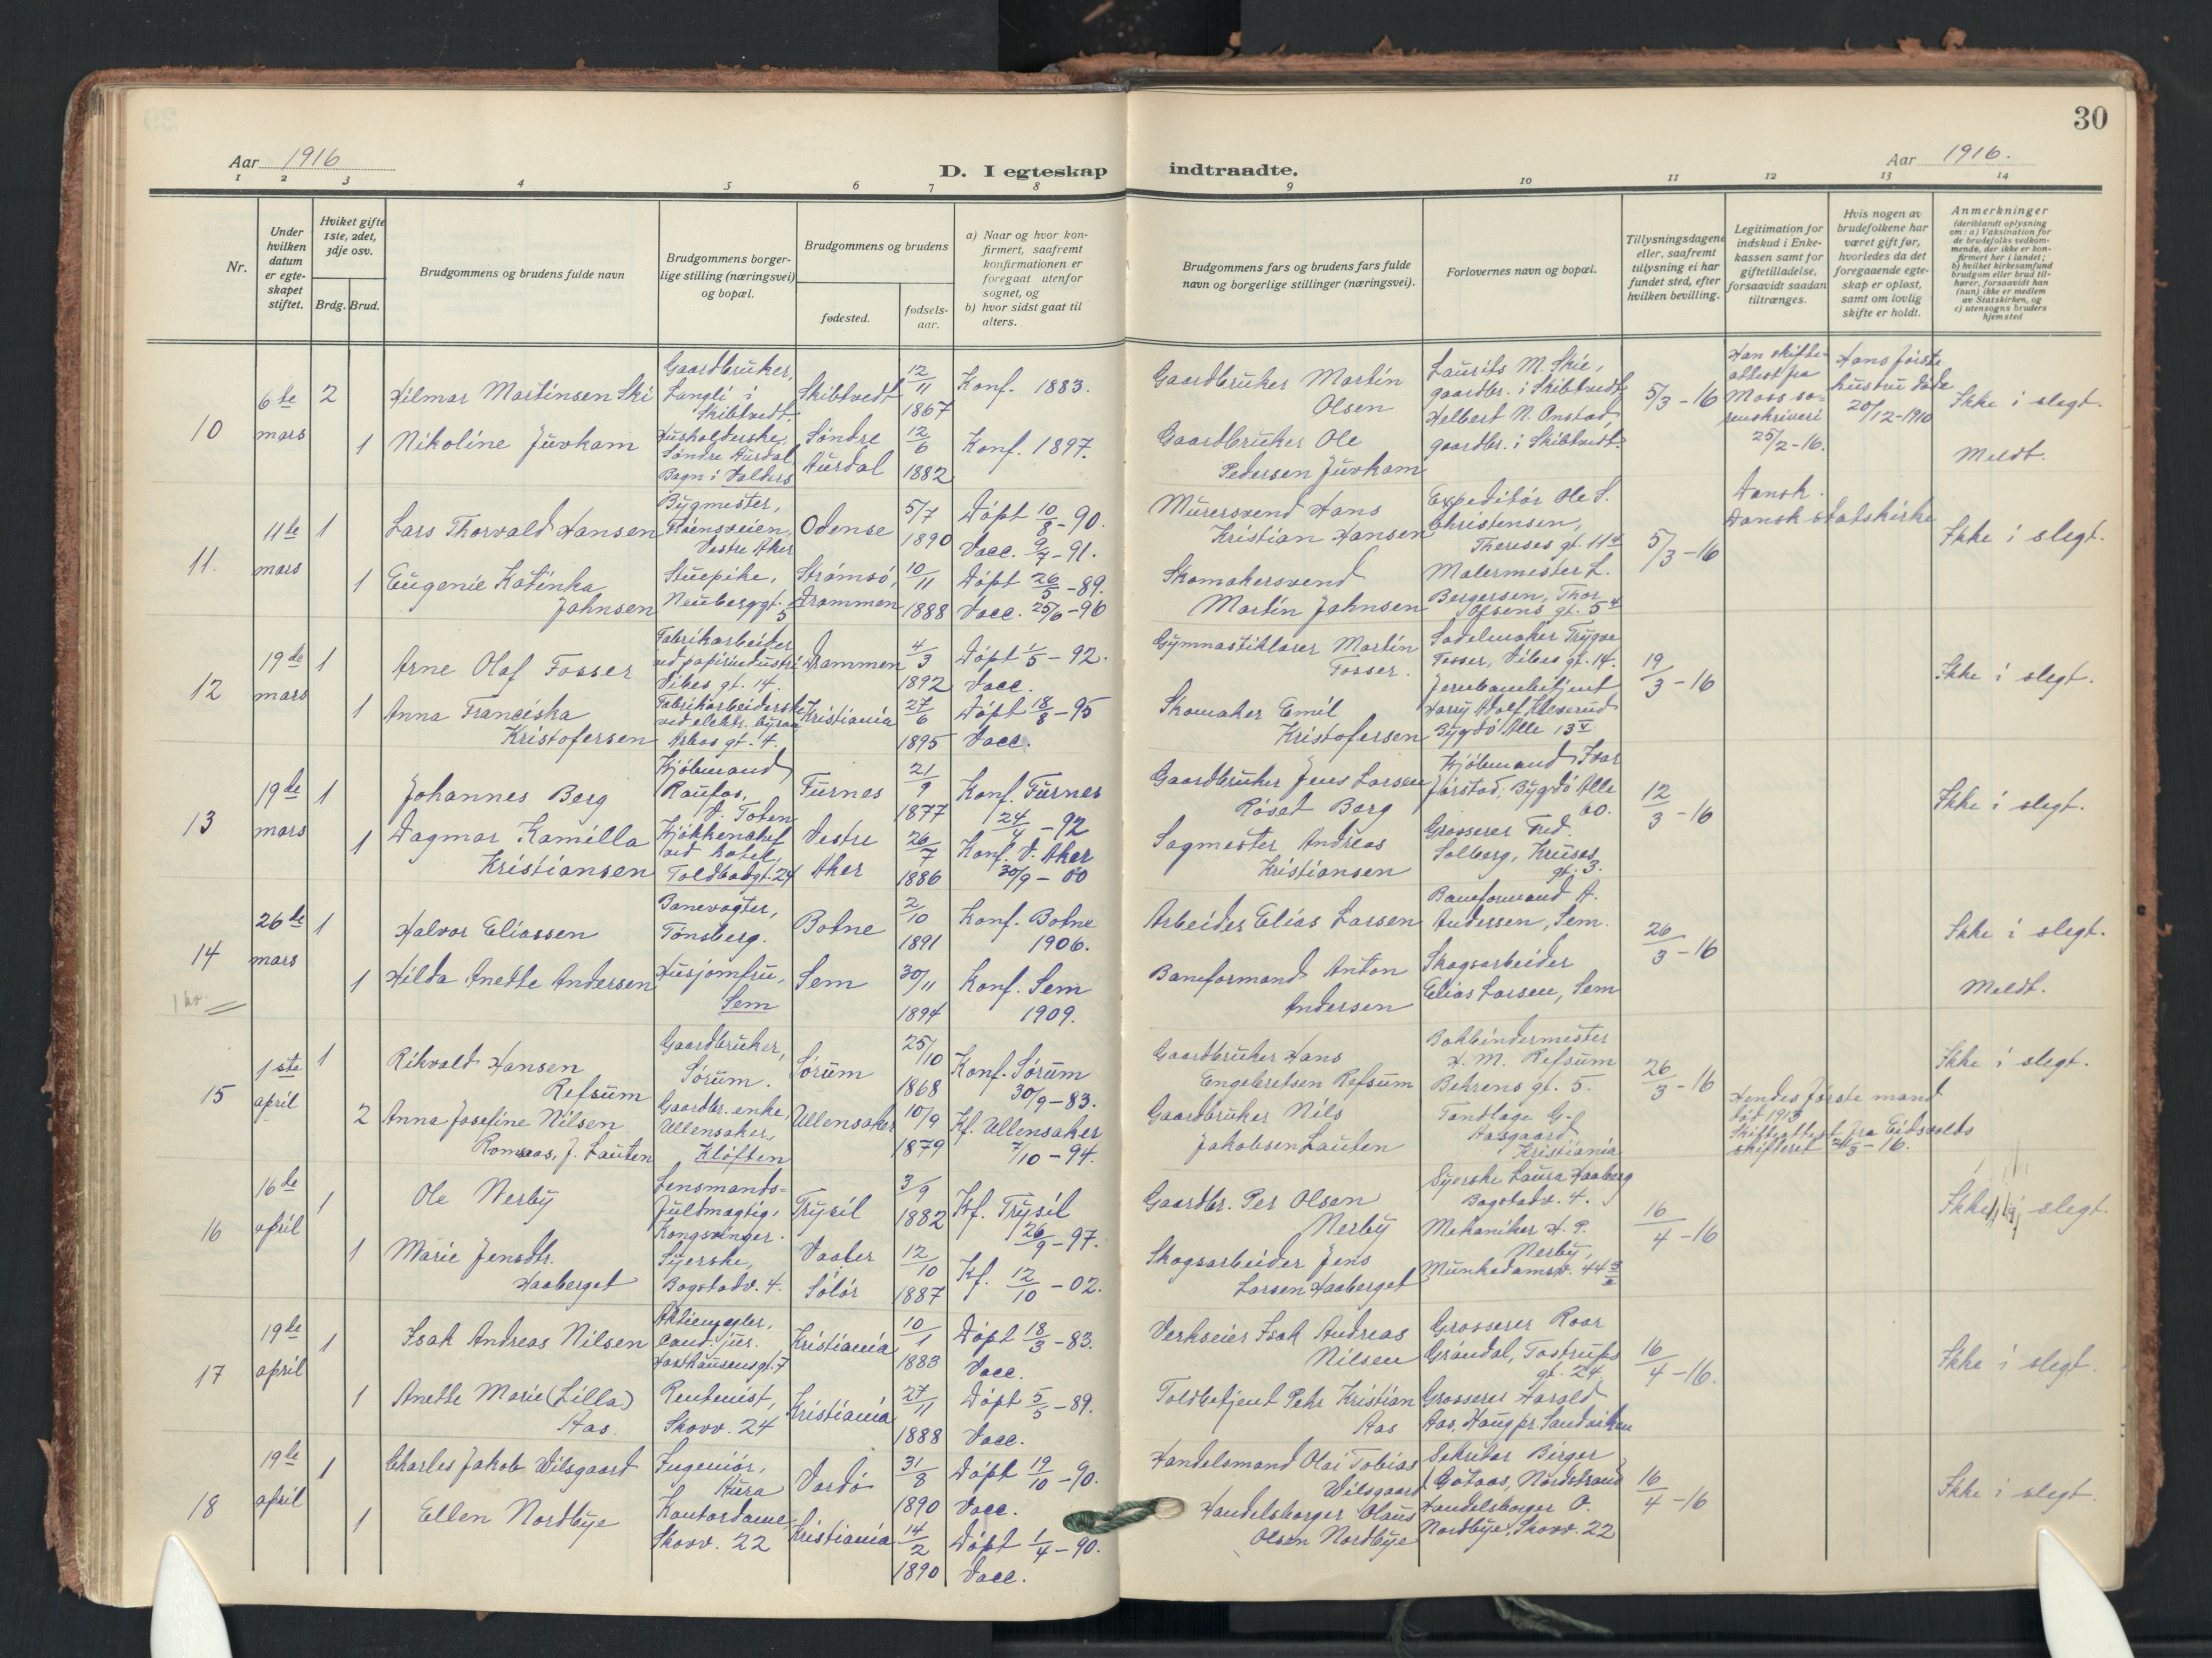 30
Aar 1916
D. I egteskap indtraadte.
Aar 1916.
1 2 3 4 5 6 7 8 9 10 11 12 13 14
Nr.
Under hvilken datum er egteskapet stiftet.
Hvilket gifte 1ste, 2det, 3dje osv.
Brdg. Brud.
Brudgommens og brudens fulde navn
Brudgommens borgerlige stilling (næringsvei) og bopæl.
Brudgommens og brudens
fødested.
fødselsaar.
a) Naar og hvor konfirmert, saafremt konfirmationen er foregaat utenfor sognet, og
b) hvor sidst gaat til alters.
Brudgommens fars og brudens fars fulde navn og borgerlige stillinger (næringsvei).
Forlovernes navn og bopæl.
Tillysningsdagene eller, saafremt tillysning ei har fundet sted, efter hvilken bevilling.
Legitimation for indskud i Enkekassen samt for giftetilladelse, forsaavidt saadan tiltrænges.
Hvis nogen av brudefolkene har været gift før, hvorledes da det foregaaende egteskap er opløst, samt om lovlig skifte er holdt.
Anmerkninger (deriblandt oplysning om: a) Vaksination for de brudefolks vedkommende, der ikke er konfirmert her i landet; b) hvilket kirkesamfund brudgom eller brud tilhører, forsaavidt han (hun) ikke er medlem av Statskirken, og c) utensogns bruders hjemsted
10
6te mars
2
Hilmar Martinsen Ski
Gaardbruker, Langli i Skibtvedt.
Skibtvedt
12/11 1867
Konf. 1883.
Gaardbruker Martin Olsen
Laurits M. Skie, gaardbr. i Skibtvedt,
Helbert N. Onstad, gaardbr. i Skibtvedt.
5/3 - 16
Han skifteattest fra Moss sorenskriveri 25/2 - 16.
Hans første hustru døde 20/12 - 1910
Ikke i slegt.
1
Nikoline Juvkam
Husholderske, Søndre Aurdal Bagn i Valders
Søndre Aurdal
12/6 1882
Konf. 1897.
Gaardbruker Ole Pedersen Juvkam
Meldt.
11.
11te mars
1
Lars Thorvald Hansen
Bygmester, Vestre Aker
Odense
5/7 1890
Døpt 10/8 - 90.
Vacc. 9/7 - 91.
Murersvend Hans Kristian Hansen
Expeditør Ole S. Christensen, Thereses gt. 11
5/3 - 16
Dansk.
Dansk statskirke
Ikke i slegt.
1
Eugenie Katinka Jahnsen
Stuepike, Neuberggt. 5
Strømsø, Drammen
10/11 1888
Døpt 26/5 - 89.
Vacc. 25/6 - 96
Skomakersvend Martin Jahnsen
Malermester L. Bergersen, Thor Olsens gt. 5
12
19de mars
1
Arne Olaf Fosser
Fabrikarbeider ved papirindustri Vibes gt. 14.
Drammen
4/3 1892
Døpt 1/5 - 92.
Vacc.
Gymnastiklærer Martin Fosser.
Sadelmaker Trygve Fosser, Vibes gt. 14.
19/3 - 16
Ikke i slegt.
1
Anna Franciska Kristofersen
Fabrikarbeiderske ved elektr. byraa Arbos gt. 4.
Kristiania
27/6 1895
Døpt 18/8 - 95
Vacc.
Skomaker Emil Kristofersen
Jernbanebetjent Harry Adolf Kleverud Bygdø Alle 13 V
13
19de mars
1
Johannes Berg
Kjøbmand, Raufos, V. Toten
Furnes
21/9 1877
Konf. Furnes 24/4 - 92
Gaardbruker Jens Larsen Røset Berg
Kjøbmand Ivar Jørstad, Bygdø Alle 60.
12/3 - 16
Ikke i slegt.
1
Dagmar Kamilla Kristiansen
Kjøkkenchef ved hotel, Toldbodgt. 24
Vestre Aker
26/7 1886
Konf. V. Aker 30/9 - 00
Sagmester Andreas Kristiansen
Grosserer Fred. Solberg, Kruses gt. 3.
14
26de mars
1
Halvor Eliassen
Banevogter, Tønsberg.
Botne
2/10 1891
Konf. Botne 1906.
Arbeider Elias Larsen
Baneformand A. Andersen, Sem.
26/3 - 16
Ikke i slegt.
1
Hilda Anette Andersen
Husjomfru, Sem
Sem
30/11 1894
Konf. Sem 1909.
Baneformand Anton Andersen
Skogsarbeider Elias Larsen, Sem
Meldt.
1 kv.
15
1ste april
1
Rikvald Hansen Refsum
Gaardbruker, Sørum.
Sørum
25/10 1868
Konf. Sørum 30/9 - 83.
Gaardbruker Hans Engebretsen Refsum
Bokbindermester H. M. Refsum Behrens gt. 5.
26/3 - 16
Ikke i slegt.
2
Anna Josefine Nilsen Romsaas, f. Lauten
Gaardbr. enke, Ullensaker, Kløften
Ullensaker
10/9 1879
Kf. Ullensaker 7/10 - 94.
Gaardbruker Nils Jakobsen Lauten
Tandlæge G. Aasgaard Kristiania
Hendes første mand død 1913
Skifteattest fra Eidsvolds skifteret 24/3 - 16.
16
16de april
1
Ole Nerby
Lensmandsfuldmægtig, Kongsvinger.
Trysil
3/9 1882
Kf. Trysil 26/9 - 97.
Gaardbr. Per Olsen Nerby
Syerske Laura Haaberg Bogstadv. 4.
16/4 - 16
Ikke i slegt.
1
Marie Jensdtr. Haaberget
Syerske, Bogstadv. 4.
Vaaler Solør
12/10 1887
Kf. 12/10 - 02.
Skogsarbeider Jens Larsen Haaberget
Mekaniker H. P. Nerby, Munkedamsv. 44
17
19de april
1
Isak Andreas Nilsen
Aktiemegler, cand. jur. Daxthausensgt. 7
Kristiania
10/1 1883
Døpt 18/3 - 83.
Vacc.
Verkseier Isak Andreas Nilsen
Grosserer Roar Grøndal, Tostrups gt. 24
16/4 - 16.
Ikke i slegt.
1
Anette Marie (Lilla) Aas.
Rentenist, Skovv. 24
Kristiania
27/11 1888
Døpt 5/5 - 89.
Vacc.
Toldbetjent Pehr Kristian Aas
Grosserer Harold Aas, Haug pr. Sandviken
18
19de april
1
Charles Jakob Wilsgaard
Ingeniør, Kura
Vardø
31/8 1890
Døpt 19/10 - 90.
Vacc.
Handelsmand Olai Tobias Wilsgaard
Sekretær Birger Gotaas, Nordstrand
16/4 - 16
Ikke i slegt.
1
Ellen Nordbye
Kontordame, Skovv. 22
Kristiania
14/2 1890
Døpt 1/4 - 90.
Vacc.
Handelsborger Olaus Olsen Nordbye
Handelsborger O. Nordbye, Skovv. 22